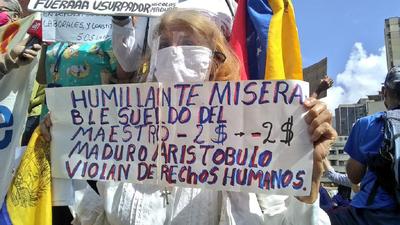 FUERAAA USURPADOR
NICOLAS
MADURO
LABORALES, Y CONSTIT
S.O.S
HUMILLANTE MISERA
BLE SUELDO DEL
MAESTRO -2$ → -2$
MADURO/ARISTOBULO
VIOLAN DERECHOS HUMANOS.